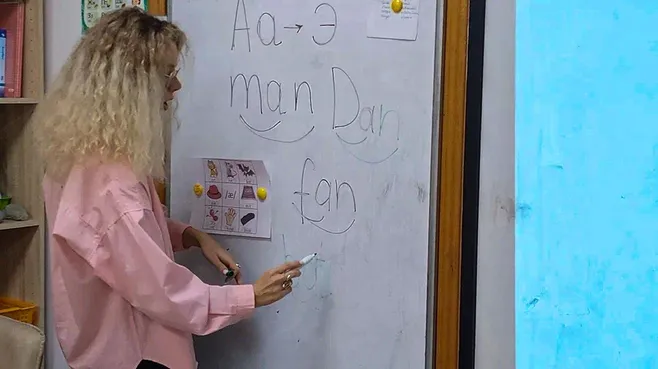 Aa → Э
man Dan
fan
/æ/